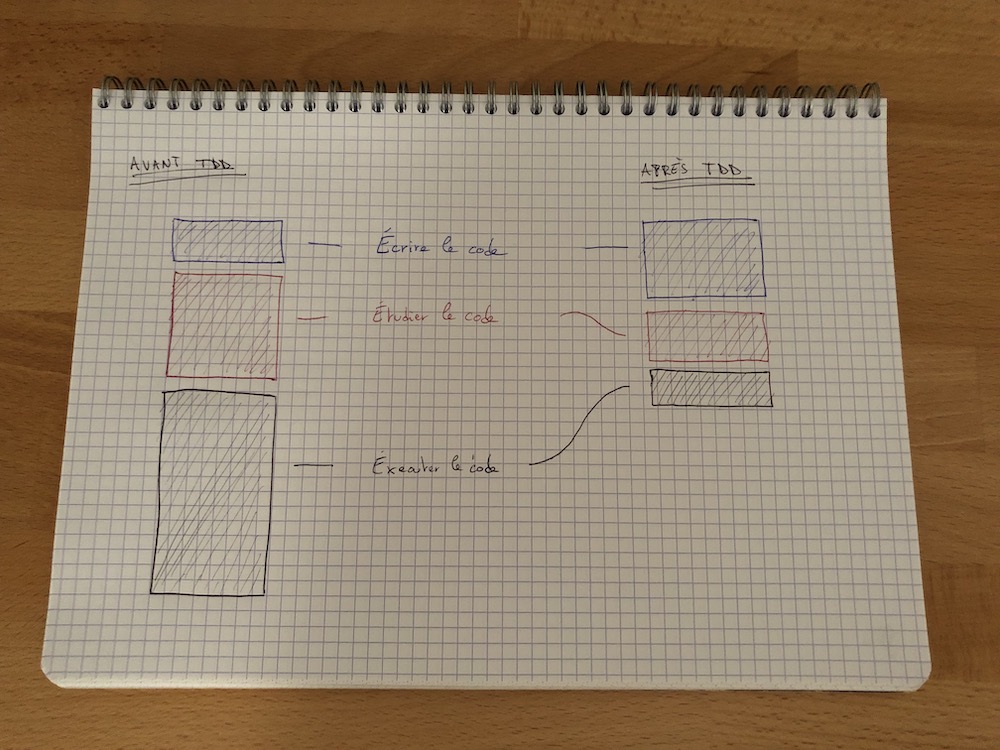 AVANT TDD
APRÈS TDD
Écrire le code
Étudier le code
Éxecuter le code